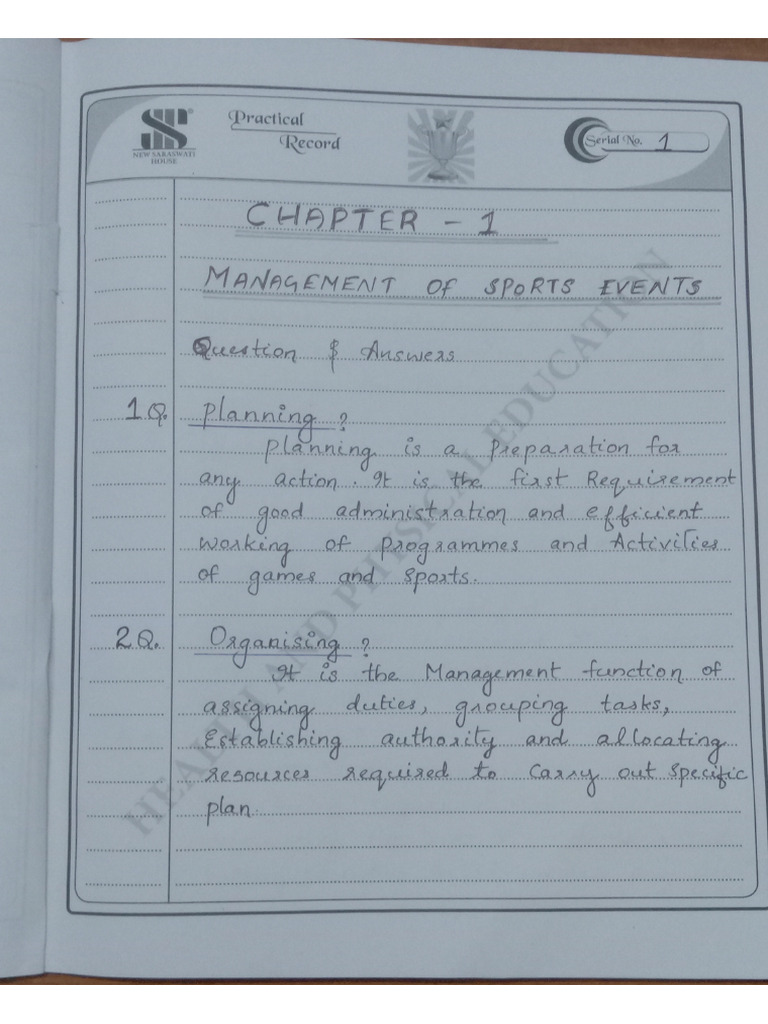 NEW SARASWATI
HOUSE
Practical
Record
Serial No. 1
CHAPTER - 1
MANAGEMENT OF SPORTS EVENTS
Question & Answers
1Q. Planning ?
Planning is a preparation for
any action. It is the first Requirement
of good administration and efficient
working of programmes and Activities
of games and sports.
2Q. Organising ?
It is the Management function of
assigning duties, grouping tasks,
Establishing authority and allocating
resources required to Carry out specific
plan.
HEALTH AND PHYSICAL EDUCATION